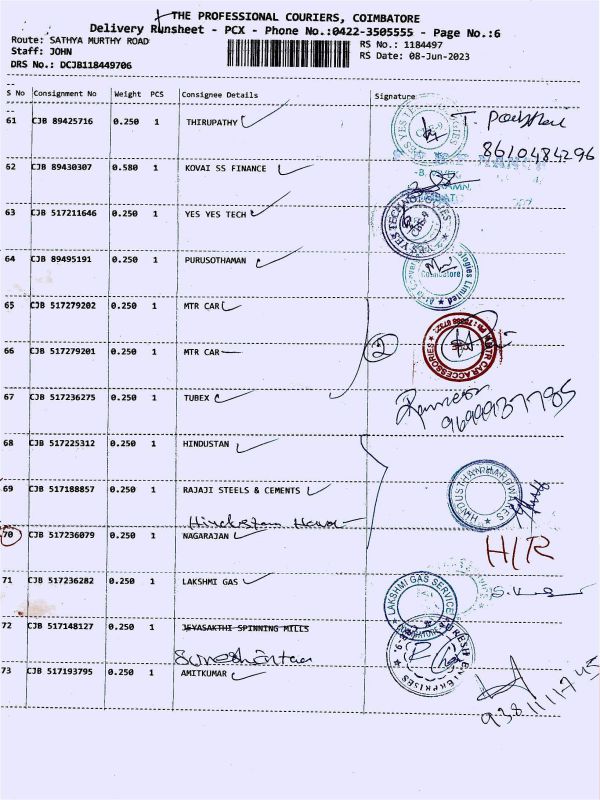 THE PROFESSIONAL COURIERS, COIMBATORE
Delivery Runsheet - PCX - Phone No.:0422-3505555 - Page No.:6
Route: SATHYA MURTHY ROAD
RS No.: 1184497
Staff: JOHN
RS Date: 08-Jun-2023
DRS No.: DCJB118449706
S No Consignment No Weight PCS Consignee Details Signature
61 CJB 89425716 0.250 1 THIRUPATHY
8610484296
62 CJB 89430307 0.580 1 KOVAI SS FINANCE
63 CJB 517211646 0.250 1 YES YES TECH
YES YES TECHNOLOGIES
64 CJB 89495191 0.250 1 PURUSOTHAMAN
Coimbatore
65 CJB 517279202 0.250 1 MTR CAR
66 CJB 517279201 0.250 1 MTR CAR
2
MTR CAR ACCESSORIES
67 CJB 517236275 0.250 1 TUBEX
68 CJB 517225312 0.250 1 HINDUSTAN
69 CJB 517188857 0.250 1 RAJAJI STEELS & CEMENTS
HINDUSTHAN HARDWARES
Hindustan
70 CJB 517236079 0.250 1 NAGARAJAN
H/R
71 CJB 517236282 0.250 1 LAKSHMI GAS
LAKSHMI GAS SERVICE
72 CJB 517148127 0.250 1 JEYASAKTHI SPINNING MILLS
ENTERPRISES
73 CJB 517193795 0.250 1 AMITKUMAR